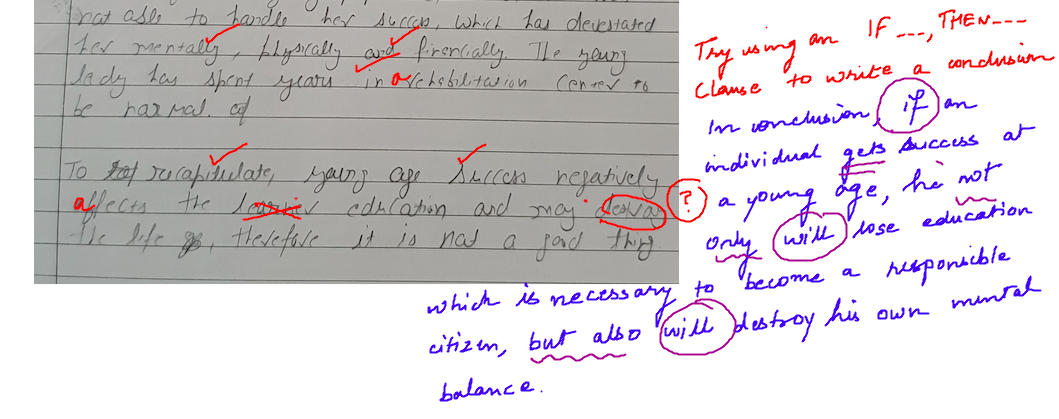 not able to handle her success, which has devestated
her mentally, physically and finencially. The young
lady has spent years in a rehabilitation center to
be normal. of
To recapitulate, young age success negatively
affects the education and may destroy ?
the life, therefore it is not a good thing.
Try using an IF ---, THEN ---
Clause to write a conclusion
In conclusion, if an
individual gets success at
a young age, he not
only will lose education
which is necessary to become a responsible
citizen, but also will destroy his own mental
balance.